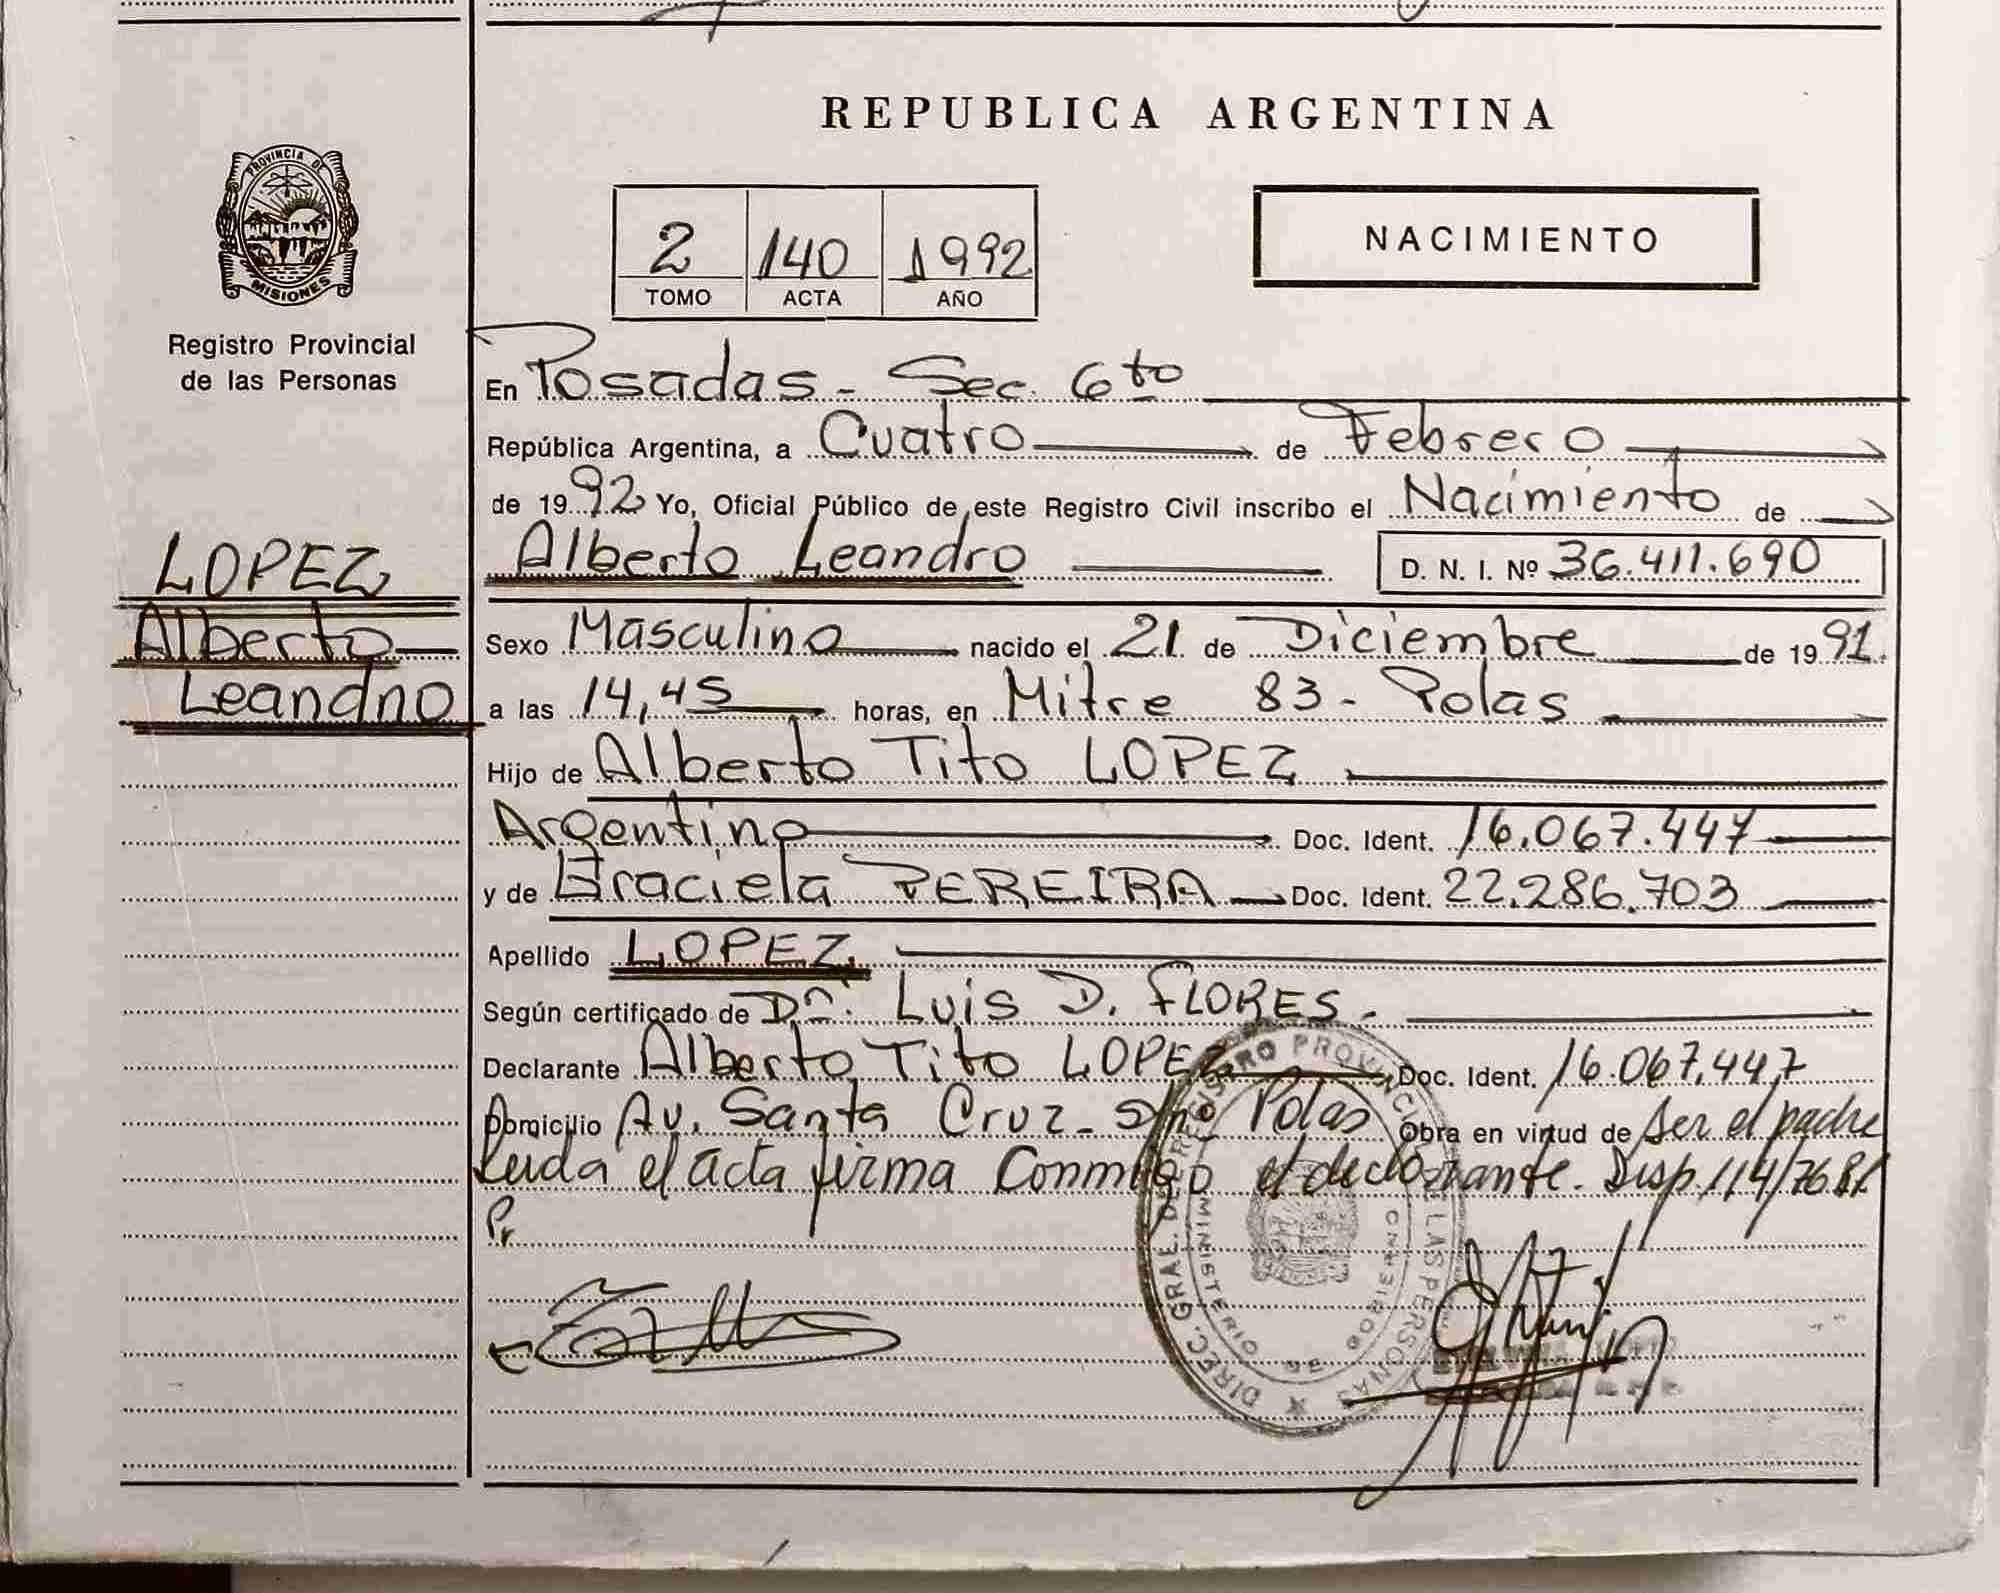 REPUBLICA ARGENTINA
PROVINCIA DE
MISIONES
Registro Provincial
de las Personas
2 140 1992
TOMO ACTA AÑO
NACIMIENTO
LOPEZ
Alberto
Leandro
En Posadas - Sec. 6to
República Argentina, a Cuatro de Febrero
de 1992 Yo, Oficial Público de este Registro Civil inscribo el Nacimiento de
Alberto Leandro D. N. I. Nº 36.411.690
Sexo Masculino nacido el 21 de Diciembre de 1991.
a las 14,45 horas, en Mitre 83 - Pdas
Hijo de Alberto Tito LOPEZ
Argentino Doc. Ident. 16.067.447
y de Graciela PEREIRA Doc. Ident. 22.286.703
Apellido LOPEZ
Según certificado de Dr. Luis D. FLORES.
Declarante Alberto Tito LOPEZ Doc. Ident. 16.067.447
Domicilio Av. Santa Cruz - s/no Pdas Obra en virtud de Ser el padre
Leida el acta firma Conmigo el declarante. Disp. 114/76
DIREC. GRAL. DE REGISTRO PROVINCIAL DE LAS PERSONAS
MINISTERIO DE GOBIERNO